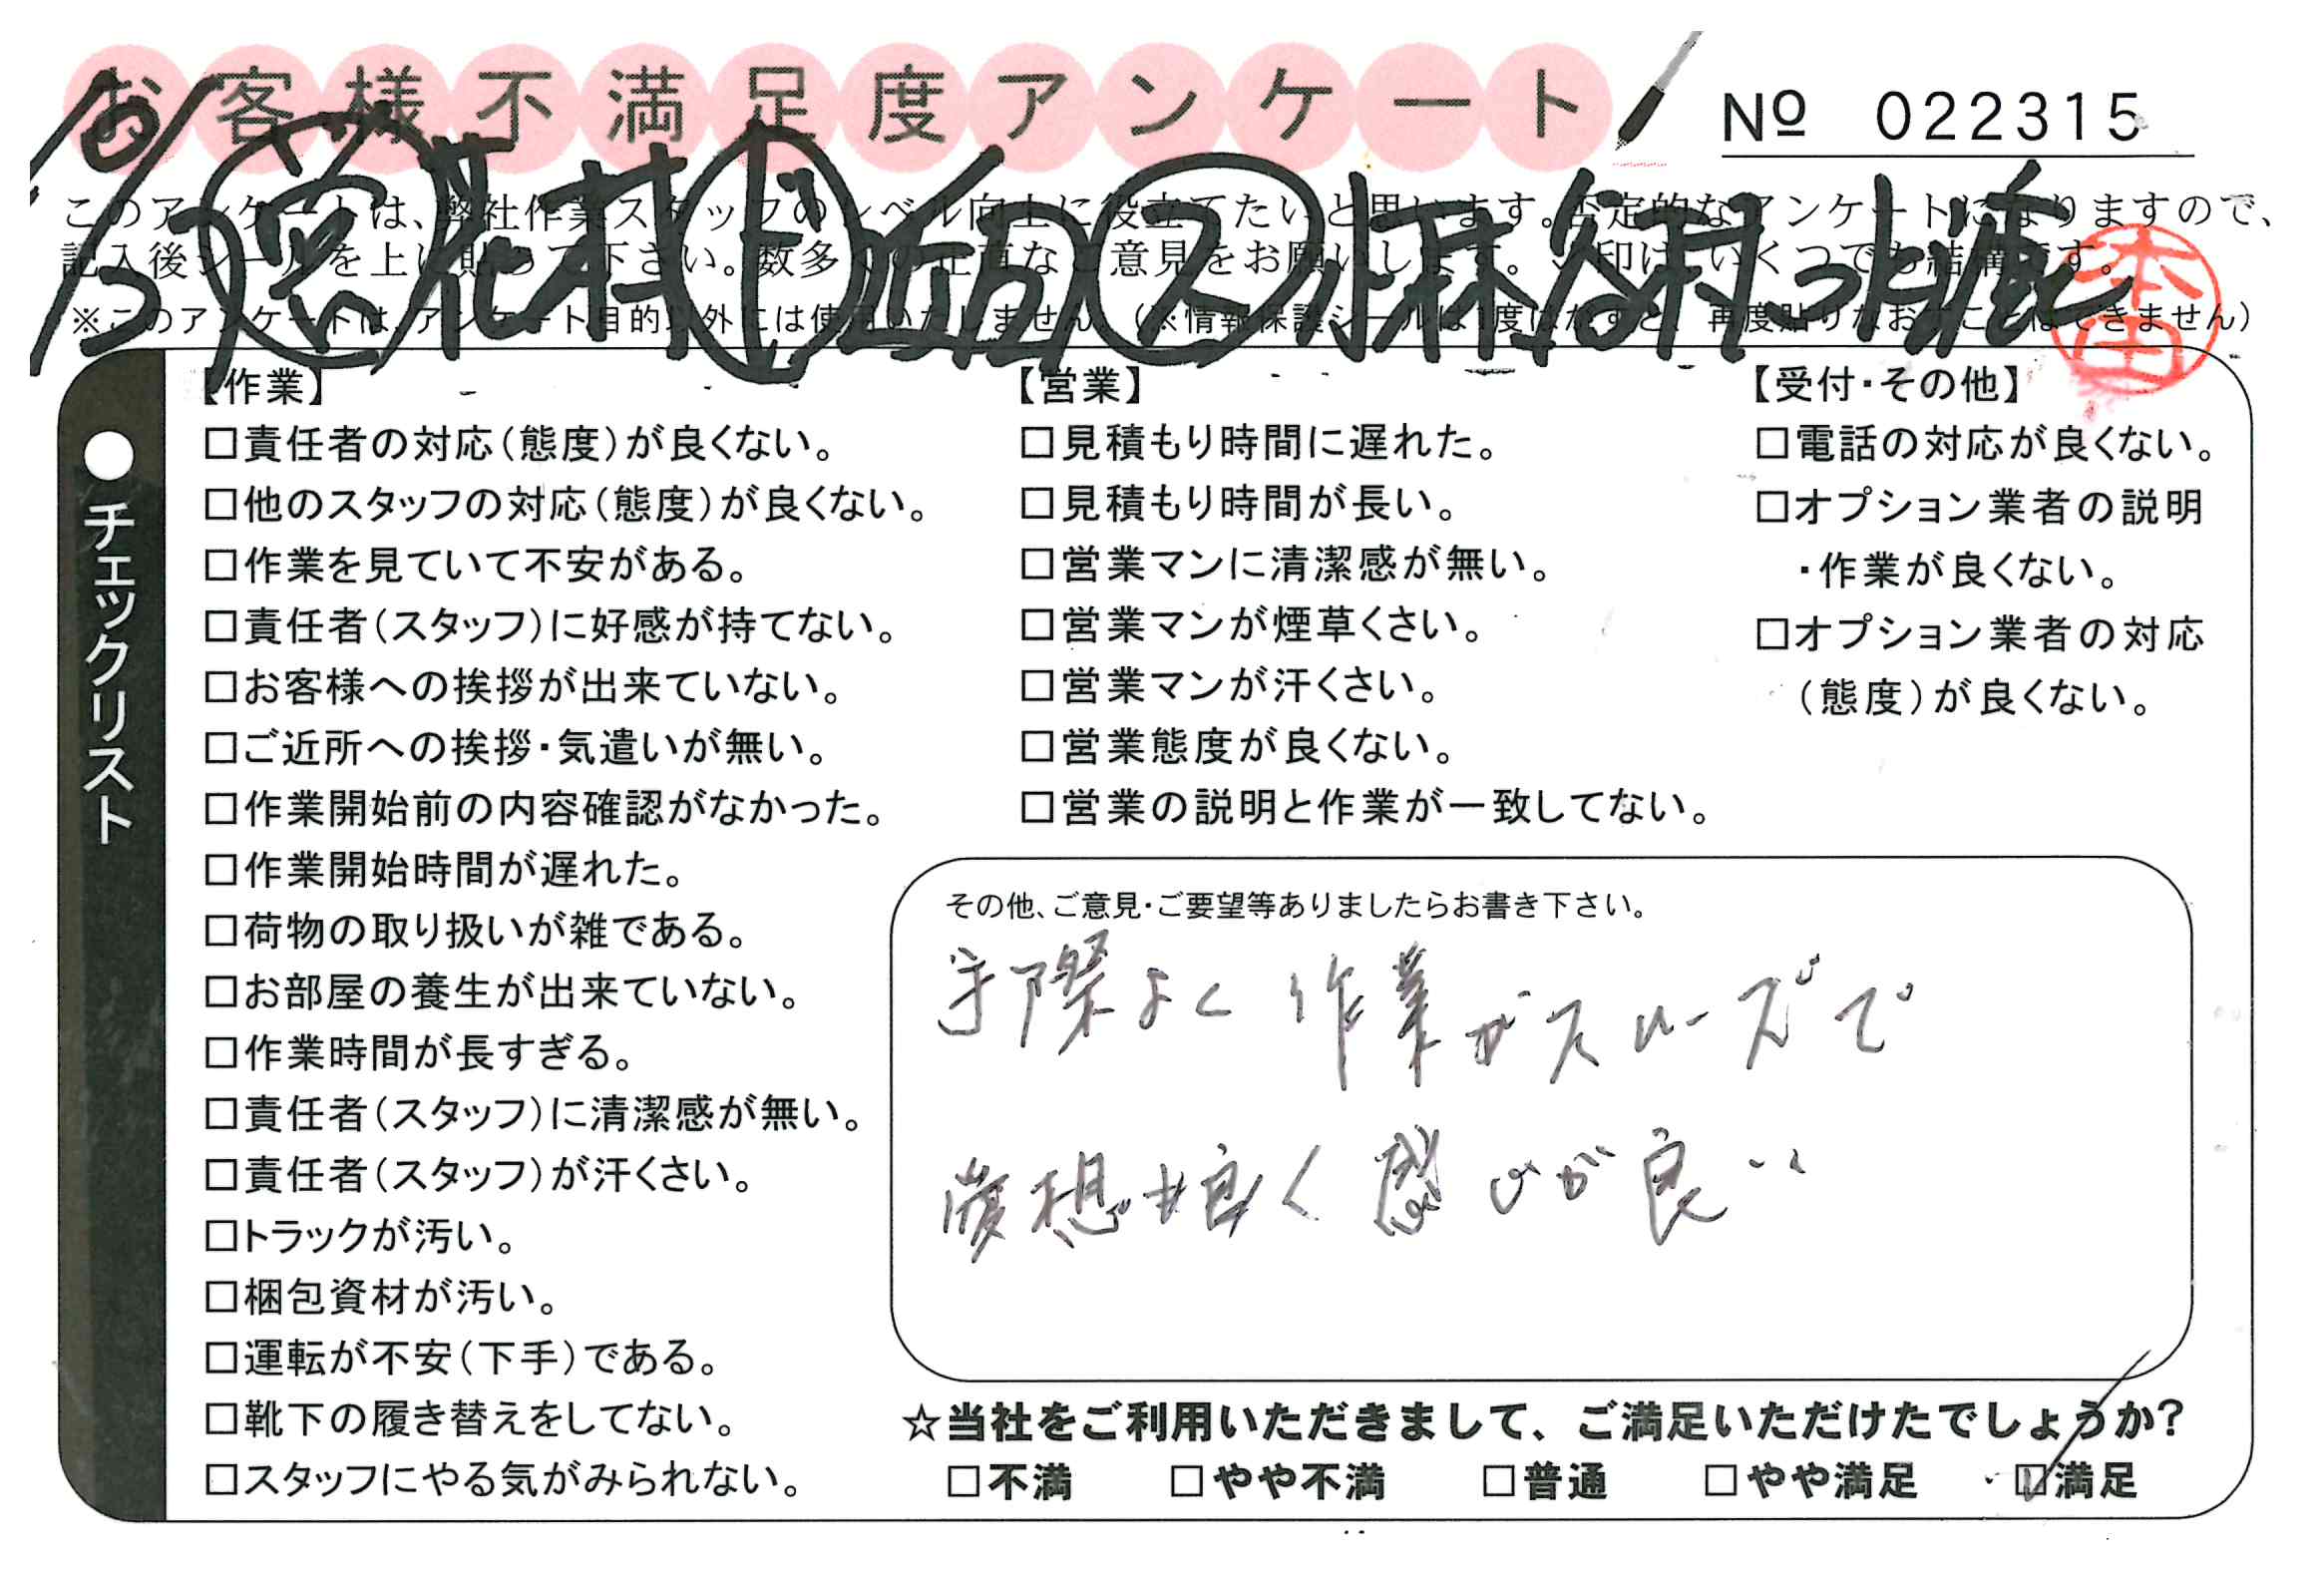 お客様不満足度アンケート
Nº 022315
このアンケートは、弊社作業スタッフのレベル向上に役立てたいと思います。否定的なアンケートになりますので、
記入後シールを上に貼って下さい。数多くの正直なご意見をお願いします。✓印はいくつでも結構です。
※このアンケートは、アンケート目的以外には使用いたしません。(※情報保護シールは1度はがすと、再度貼りなおすことはできません)
本田
●チェックリスト
【作業】
□責任者の対応(態度)が良くない。
□他のスタッフの対応(態度)が良くない。
□作業を見ていて不安がある。
□責任者(スタッフ)に好感が持てない。
□お客様への挨拶が出来ていない。
□ご近所への挨拶・気遣いが無い。
□作業開始前の内容確認がなかった。
□作業開始時間が遅れた。
□荷物の取り扱いが雑である。
□お部屋の養生が出来ていない。
□作業時間が長すぎる。
□責任者(スタッフ)に清潔感が無い。
□責任者(スタッフ)が汗くさい。
□トラックが汚い。
□梱包資材が汚い。
□運転が不安(下手)である。
□靴下の履き替えをしてない。
□スタッフにやる気がみられない。
【営業】
□見積もり時間に遅れた。
□見積もり時間が長い。
□営業マンに清潔感が無い。
□営業マンが煙草くさい。
□営業マンが汗くさい。
□営業態度が良くない。
□営業の説明と作業が一致してない。
【受付・その他】
□電話の対応が良くない。
□オプション業者の説明
・作業が良くない。
□オプション業者の対応
(態度)が良くない。
その他、ご意見・ご要望等ありましたらお書き下さい。
手際よく作業がスムーズで
想も良く感じが良い
☆当社をご利用いただきまして、ご満足いただけたでしょうか?
□不満 □やや不満 □普通 □やや満足 ☑満足